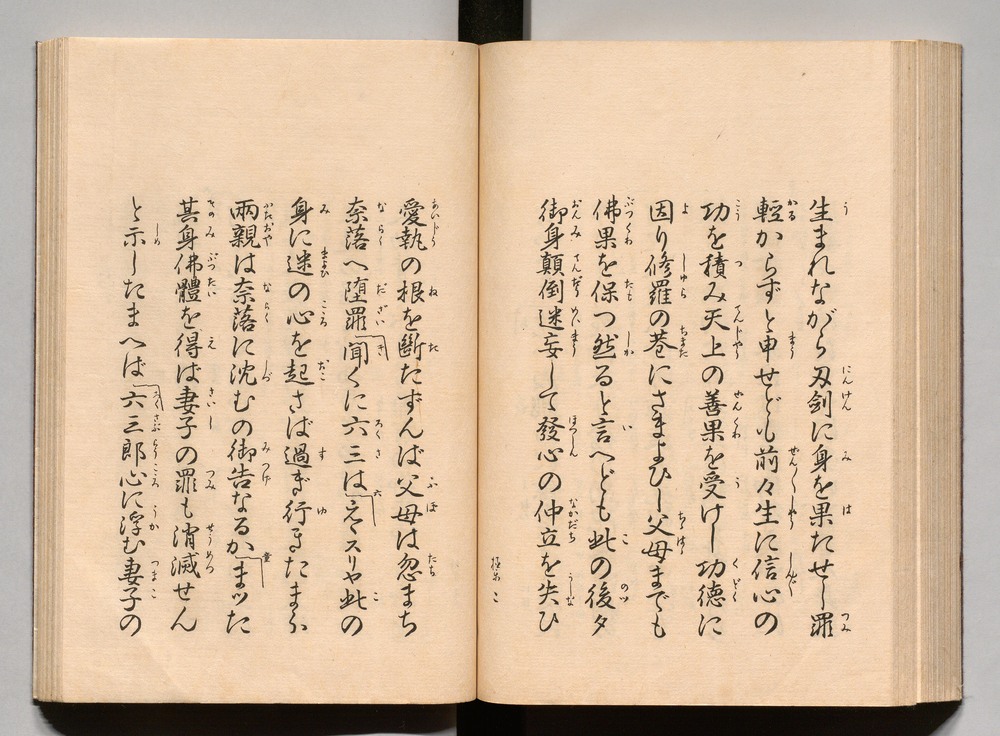 生まれながら刃剣に身を果たせし罪
軽からずと申せども前々生に信心の
功を積み天上の善果を受けし功徳に
因り修羅の巷にさまよひし父母までも
佛果を保つ然ると言へども此の後タ
御身顛倒迷妄して發心の仲立を失ひ
愛執の根を斷たずんば父母は忽まち
奈落へ堕罪聞くに六三はえゝスリヤ此の
身に迷の心を起さば過ぎ行きたまふ
兩親は奈落に沈むの御告なるかまツた
其身佛體を得ば妻子の罪も消滅せん
と示したまへば六三郎心に浮む妻子の